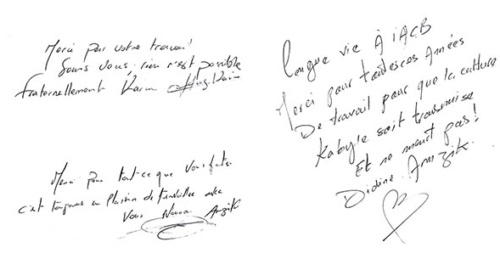 Merci pour votre travail
Sans vous rien n'est possible
fraternellement Karim
Merci pour tout ce que vous faites
c'est toujours un plaisir de travailler avec
Vous Nassa Amzik
Longue vie À l'ACB
Merci pour toutes ces Années
De travail pour que la culture
Kabyle soit transmise
Et ne meurt pas!
Didine Amzik